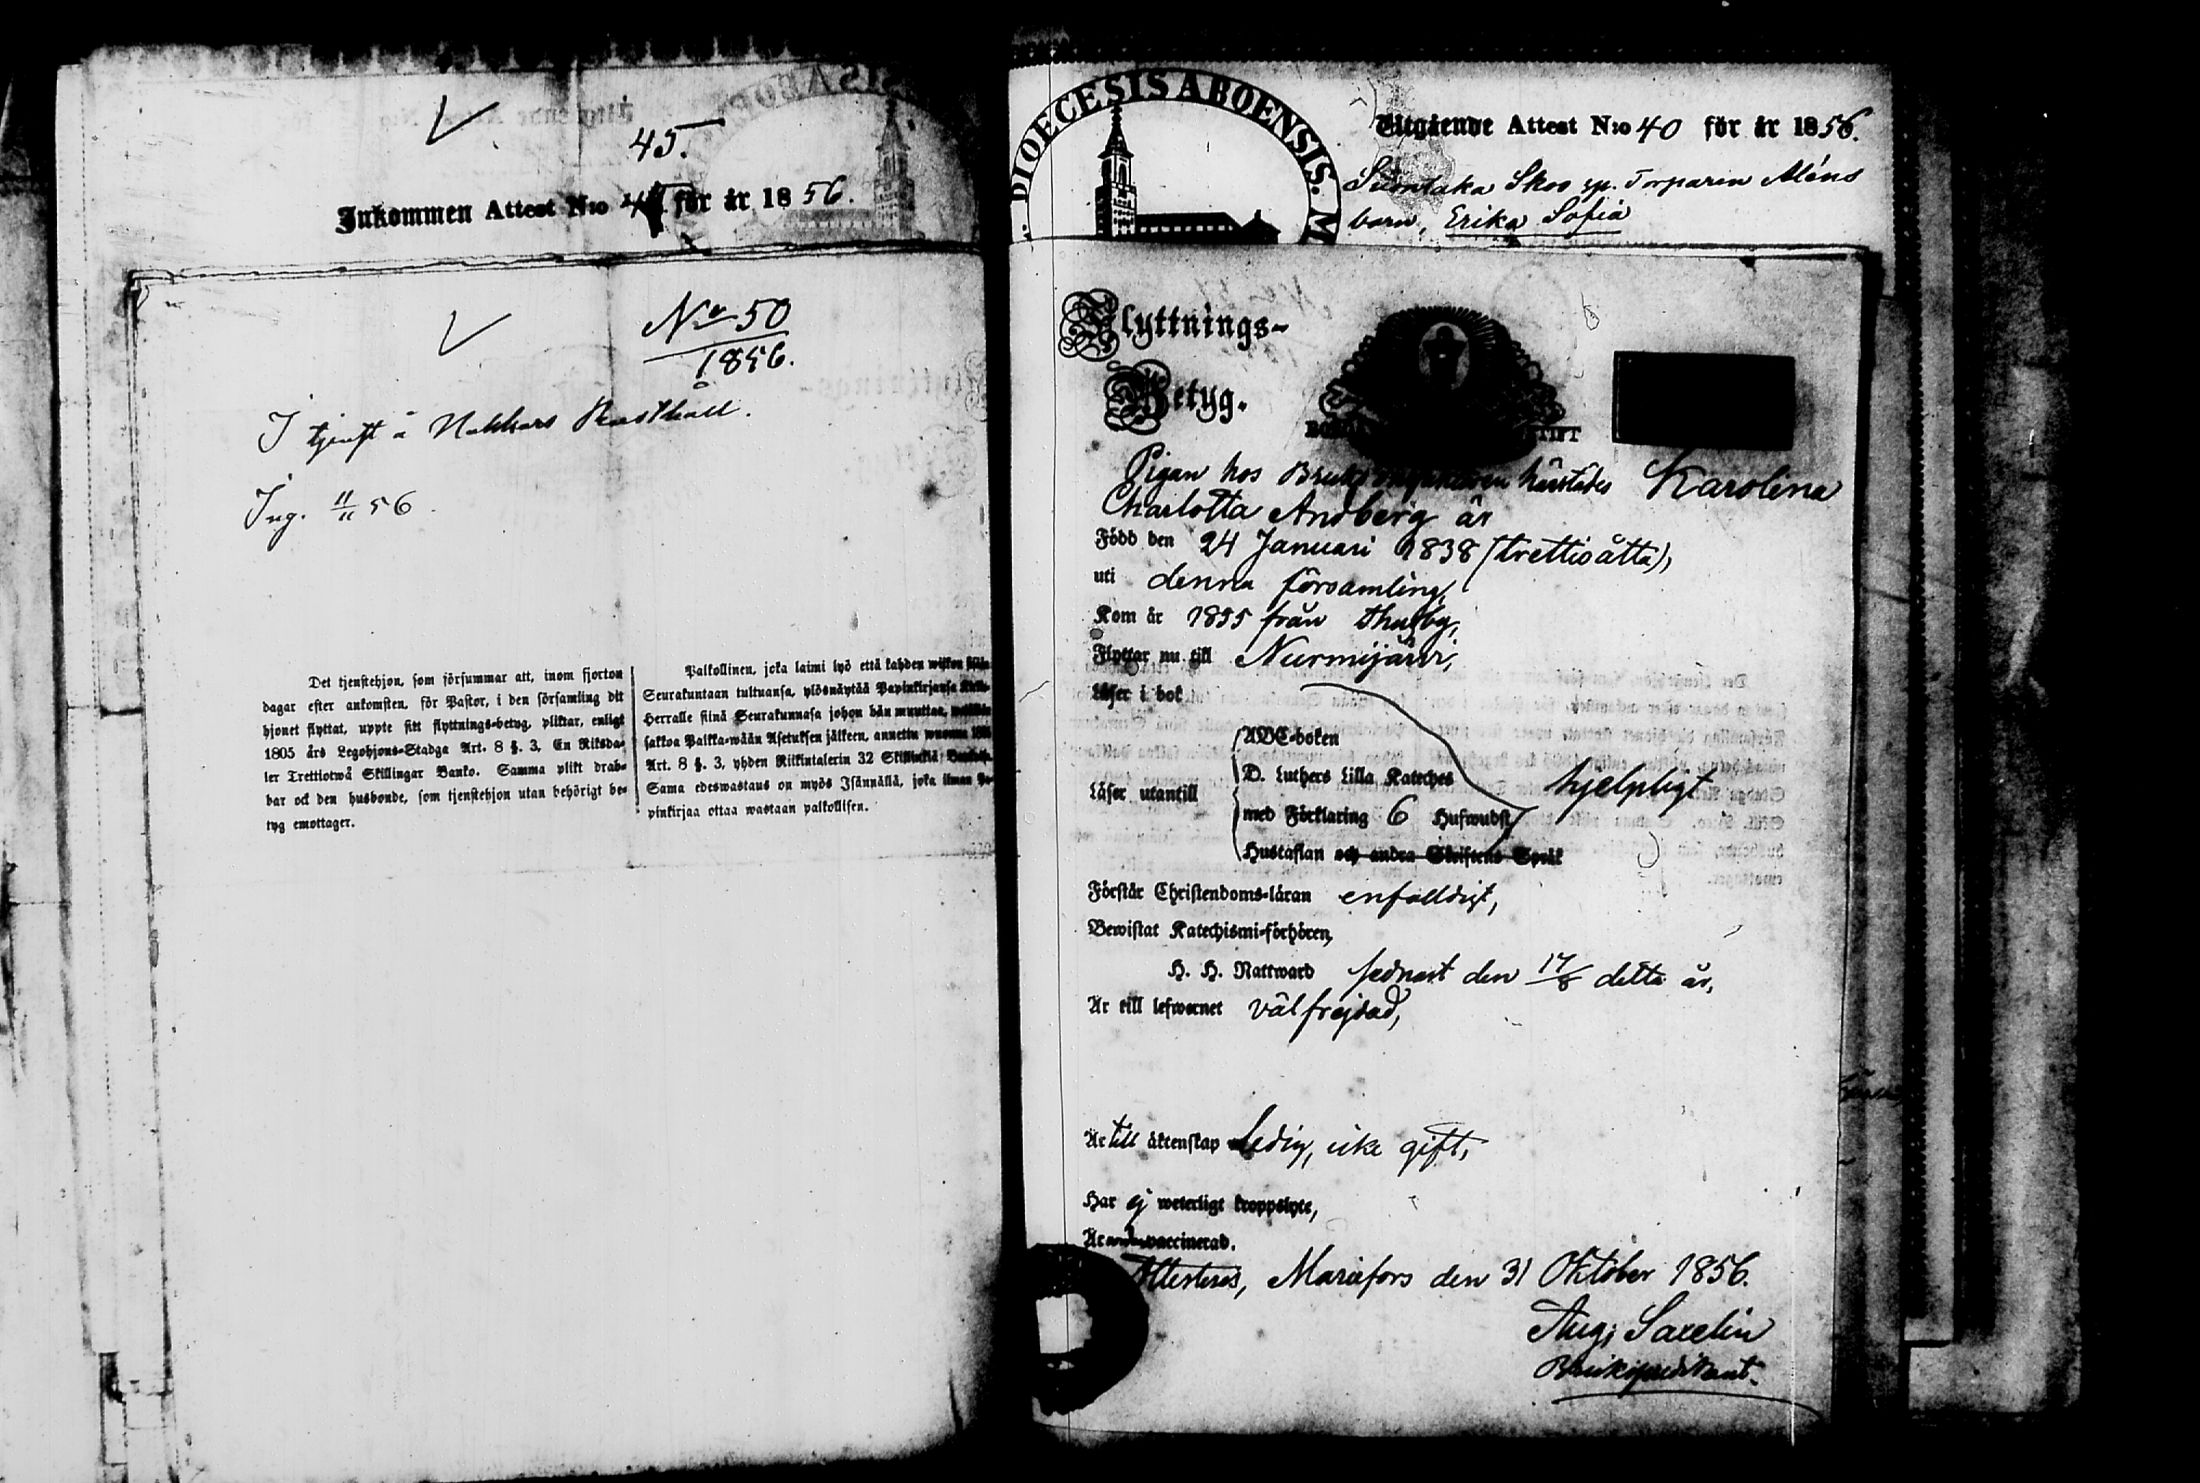 45.
Inkommen Attest N:o för år 1856.
No 50
1856.
I tjenst å Rusthåll.
Ing. 11/11 56
Det tjenstehjon, som försummar att, inom fjorton
dagar efter ankomsten, för Pastor, i den församling dit
hjonet flyttat, uppte sitt flyttnings-betyg, pliktar, enligt
1805 års Legohjons-Stadga Art. 8 §. 3, En Riksda-
ler Trettiotwå Skillingar Banko. Samma plikt drab-
bar ock den husbonde, som tjenstehjon utan behörigt be-
tyg emottager.
Palkollinen, joka laimi lyö että kahden wiikon
Seurakuntaan tultuansa, ylösnäytää Papinkirjansa
Herralle siinä Seurakunnasa johon hän muuttaa,
sakkoa Palkka-wään Asetuksen jälkeen, annettu wuonna
Art. 8 §. 3, yhden Riikintalerin 32 Skillinkiä
Sama edeswastaus on myös Isännällä, joka ilman pa-
pinkirjaa ottaa wastaan palkollisen.
DIOECESIS ABOENSIS. M
Utgående Attest N:o 40 för år 1856.
Skos Torparen
barn, Erika Sofia
Flyttnings-
Betyg.
Pigan hos härstädes Karolina
Charlotta Andberg är
Född den 24 Januari 1838 (trettioåtta),
uti denna församling,
Kom år 1855 från Thusby,
Flyttar nu till Nurmijärvi,
Läser i bok
ABC-boken
D. Luthers Lilla Kateches
hjelpligt
Läser utantill
med Förklaring 6 Hufwudst
Hustaflan och andra Skriftens Språk
Förstår Christendoms-läran enfalldigt,
Bewistat Katechismi-förhören,
H. H. Nattward sednast den 17/8 detta år,
Är till lefwernet välfrejdad,
Är till äktenskap ledig, icke gift,
Har ej weterligt kroppslyte,
Är vaccinerad.
Attesteras, Mariefors den 31 Oktober 1856.
Aug; Saxelin
Brukspredikant.